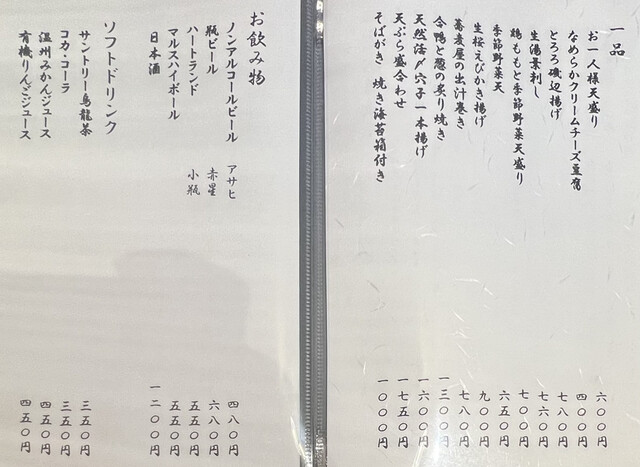 一品
お一人様天盛り 六〇〇円
なめらかクリームチーズ豆腐 四〇〇円
とろろ磯辺揚げ 七八〇円
生湯葉刺し 七六〇円
鶏ももと季節野菜天盛り 七〇〇円
季節野菜天 六五〇円
生桜えびかき揚げ 九〇〇円
蕎麦屋の出汁巻き 七八〇円
合鴨と葱の炙り焼き 一三〇〇円
天然活〆穴子一本揚げ 一六〇〇円
天ぷら盛合わせ 一七五〇円
そばがき 焼き海苔箱付き 一〇〇〇円
お飲み物
ノンアルコールビール アサヒ 四八〇円
瓶ビール 赤星 六八〇円
ハートランド 小瓶 五五〇円
マルスハイボール 五五〇円
日本酒 一二〇〇円
ソフトドリンク
サントリー烏龍茶 三五〇円
コカ・コーラ 三五〇円
温州みかんジュース 四五〇円
有機りんごジュース 四五〇円